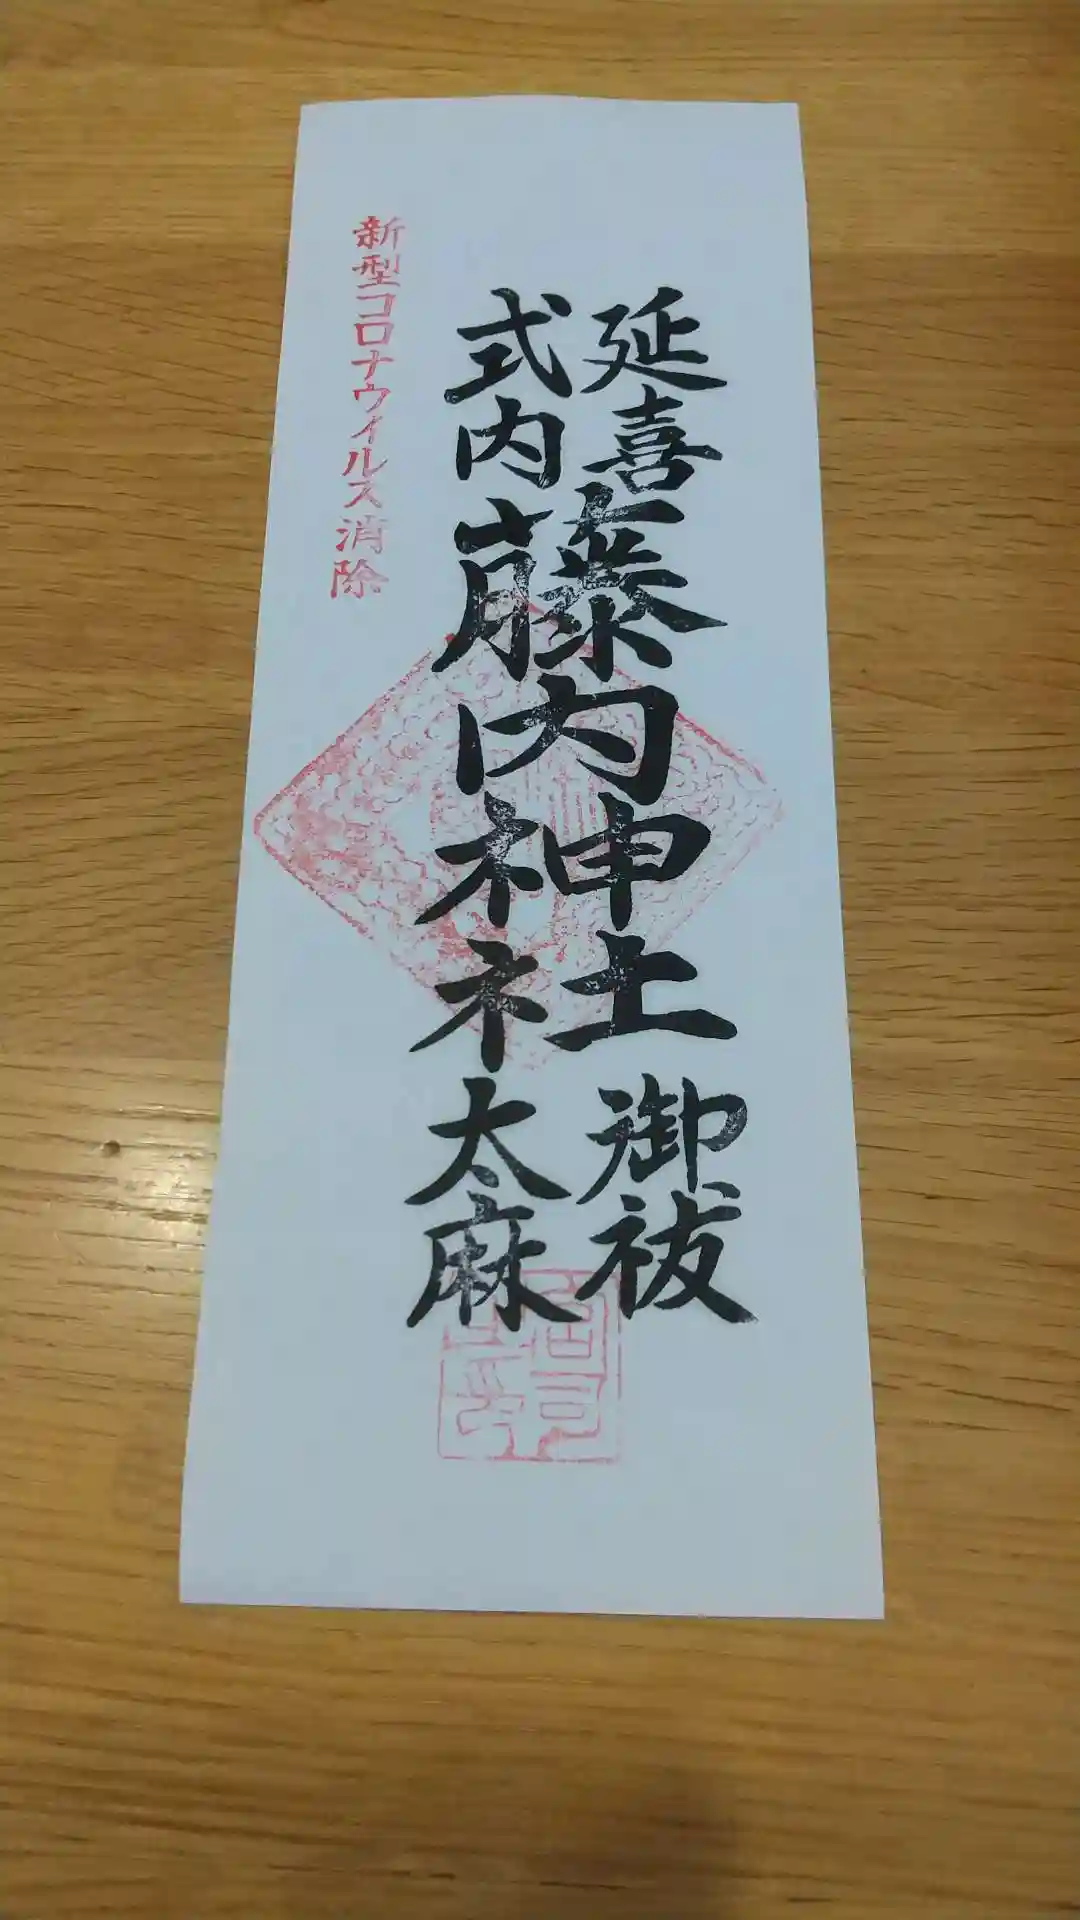 延喜式内
藤内神社
御祓太麻
新型コロナウイルス消除